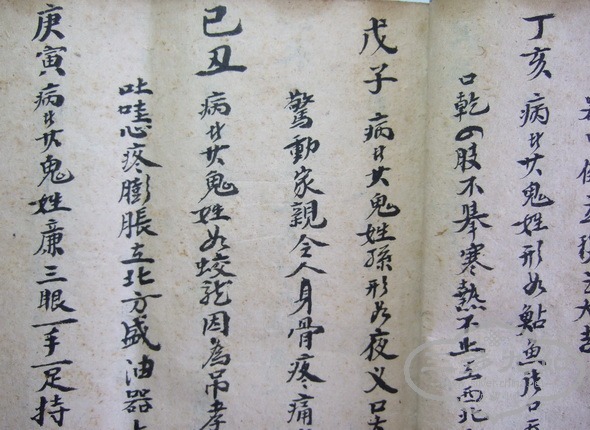 丁亥 病鬼姓形如鮎魚口
口乾四股不舉寒熱不止立西北
戊子 病鬼姓孫形如夜义口
驚動家親令人身骨疼痛
己丑 病鬼姓如蛟龍因為吊孝
吐哇心疼膨脹立北方盛油器
庚寅 病鬼姓廉三眼一手一足持